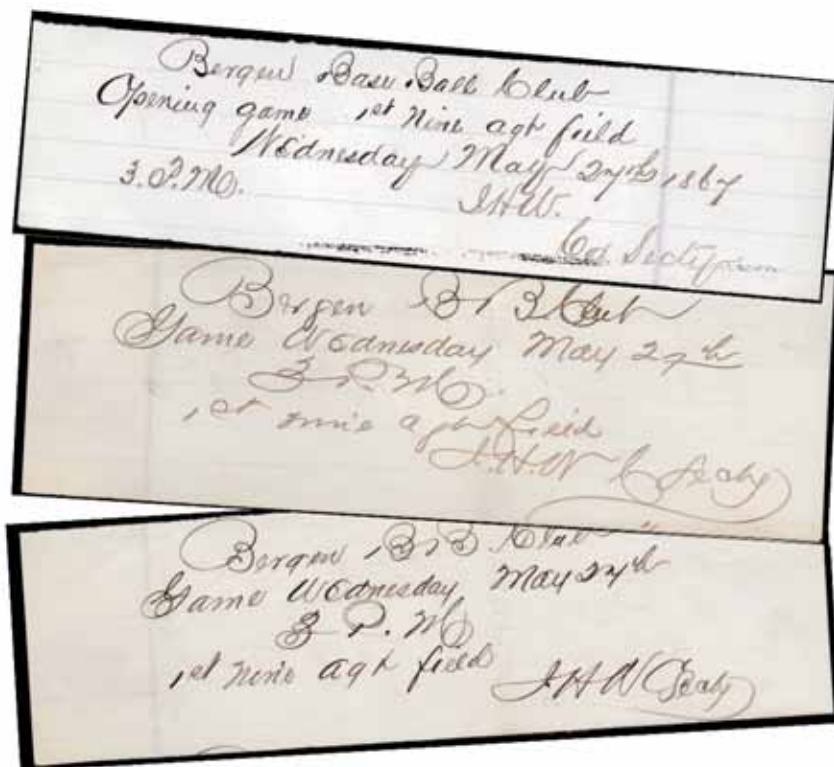 Bergen Base Ball Club
Opening game 1st nine agt field
Wednesday May 27th 1867
3. P.M.
J.H.W.
Bergen B B Club
Game Wednesday May 27th
3 P.M.
1st nine agt field
J.H.W
Bergen B B. Club
Game Wednesday May 27th
3 P. M
1st nine agt field
J H W